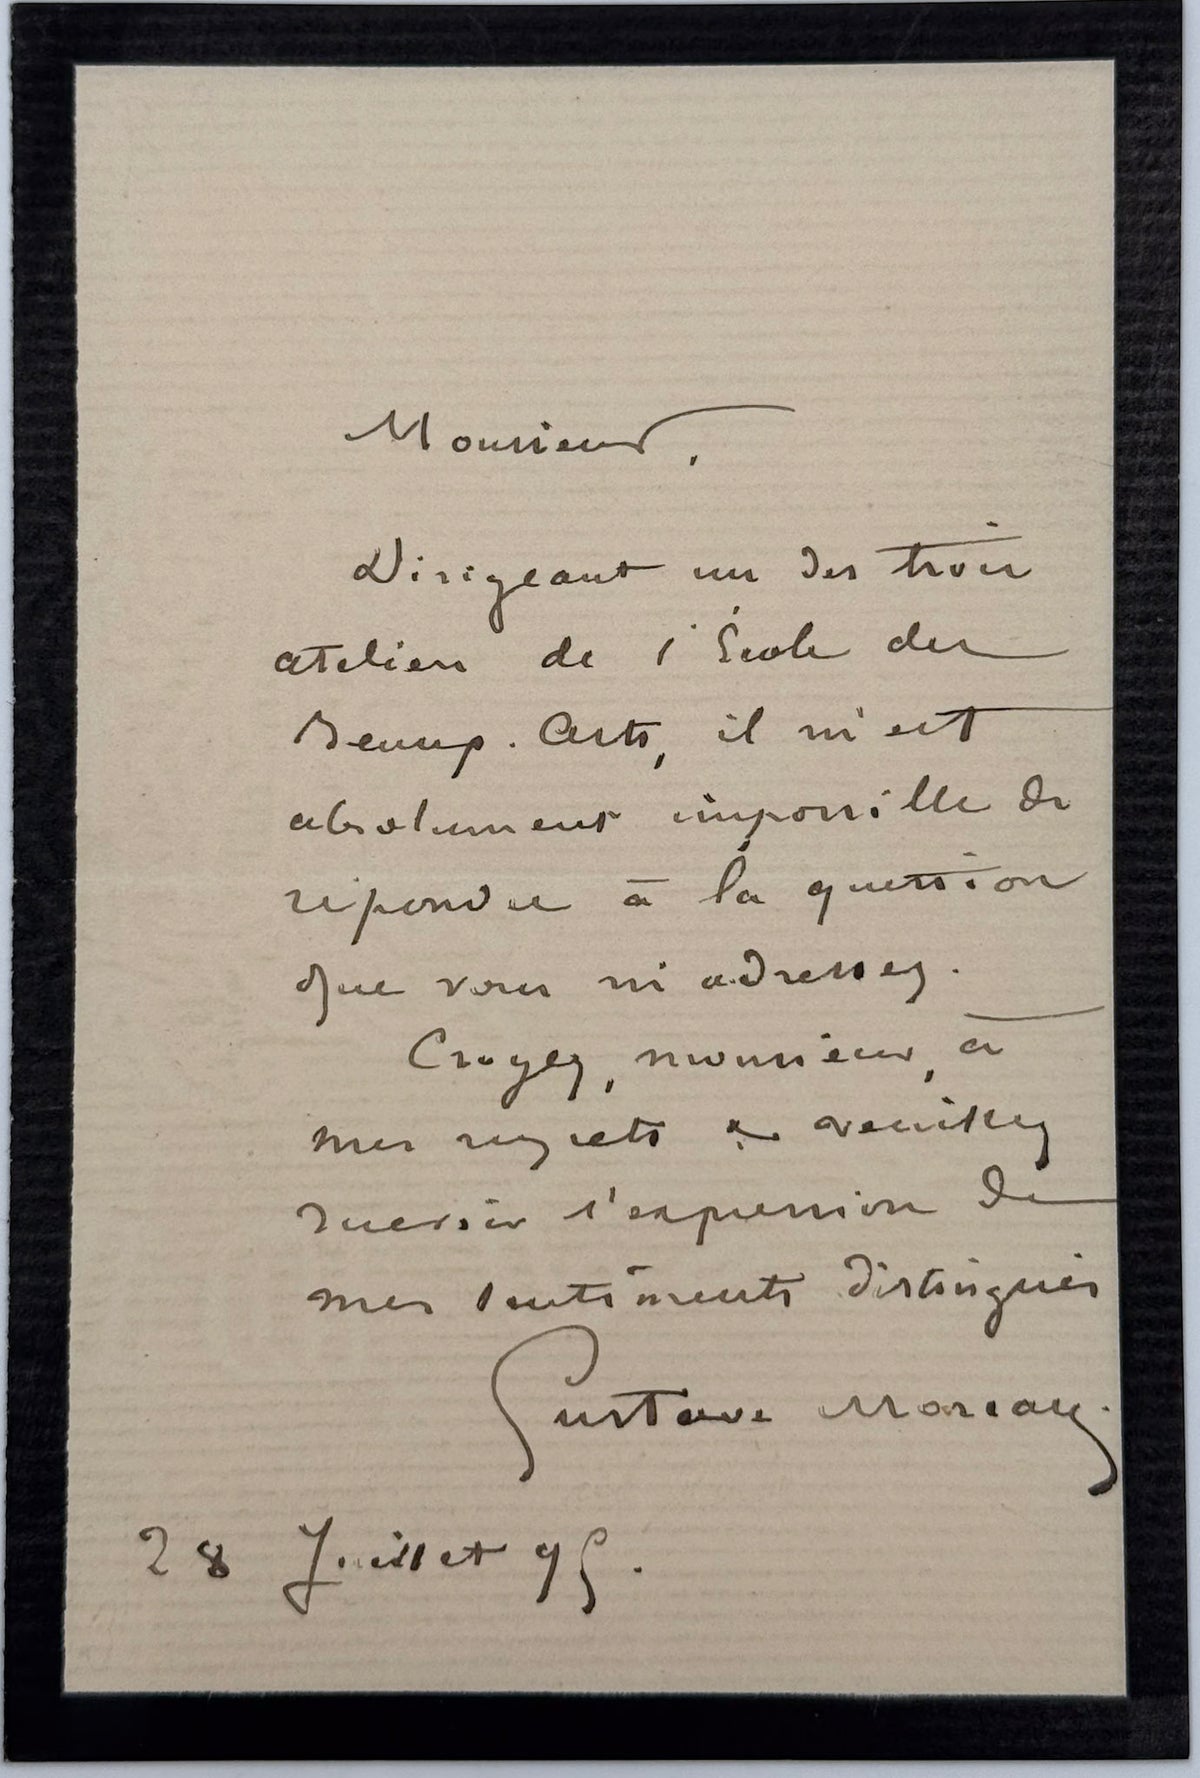 Monsieur,
Dirigeant un des trois
ateliers de l'École des
Beaux-Arts, il m'est
absolument impossible de
répondre à la question
que vous m'adressez.
Croyez, monsieur, à
mes regrets & veuillez
recevoir l'expression de
mes sentiments distingués
Gustave Moreau.
28 Juillet 95.